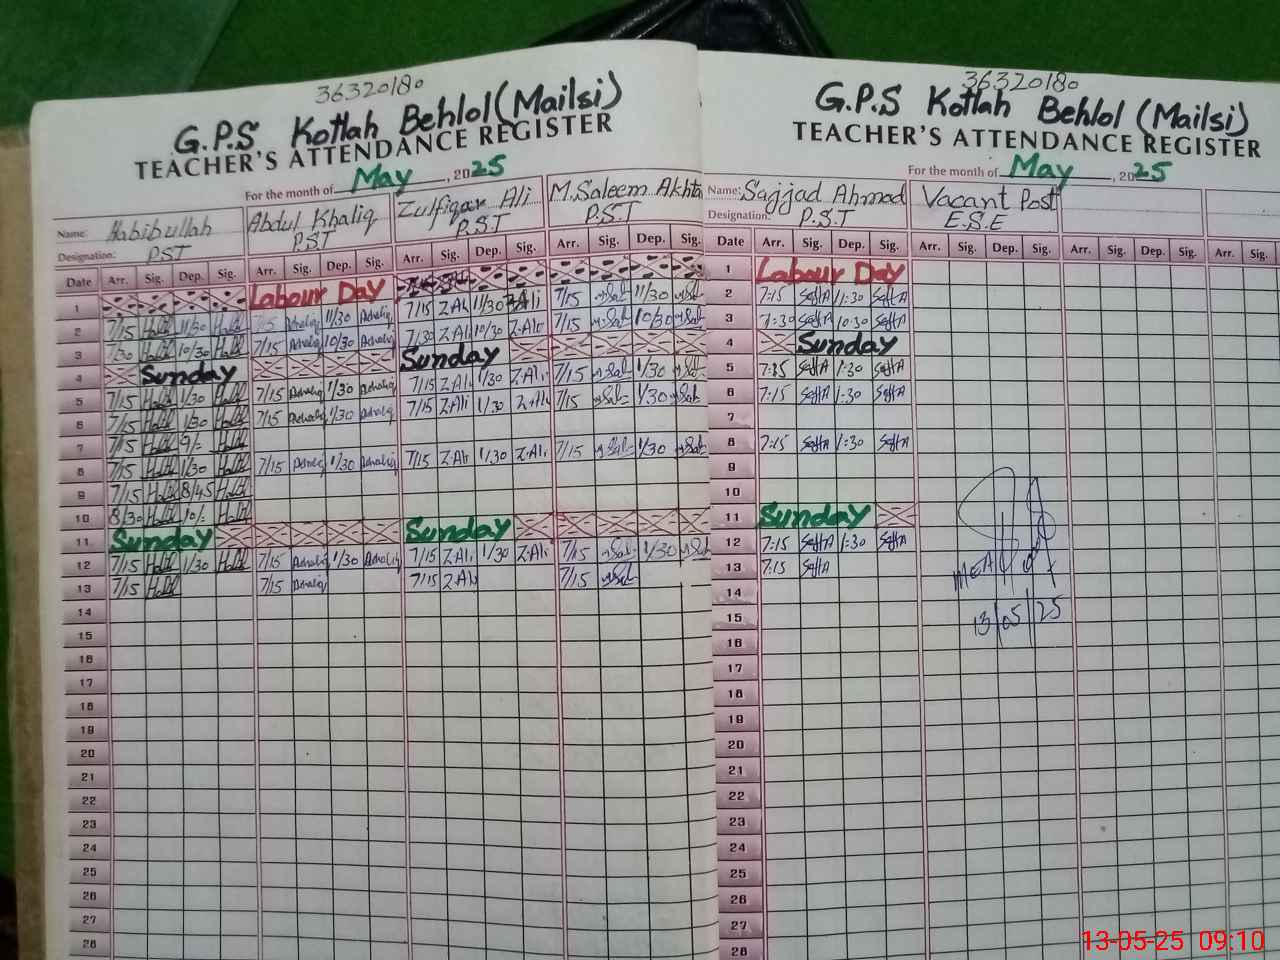 36320180
G.P.S Kotlah Behlol (Mailsi)
TEACHER'S ATTENDANCE REGISTER
For the month of May, 2025
Name: Habibullah Abdul Khaliq Zulfiqar Ali M.Saleem Akhta
Designation: PST P.S.T P.S.T P.S.T
Date Arr. Sig. Dep. Sig. Arr. Sig. Dep. Sig. Arr. Sig. Dep. Sig. Arr. Sig. Dep. Sig.
1 Labour Day
2 7/15 11/30 7/15 11/30 7/15 Z.Ali 11/30 Z.Ali 7/15 11/30
3 7/30 10/30 7/15 10/30 7/30 Z.Ali 10/30 Z.Ali 7/15 10/30
4 Sunday Sunday
5 7/15 1/30 7/15 1/30 7/15 Z.Ali 1/30 Z.Ali 7/15 1/30
6 7/15 1/30 7/15 1/30 7/15 Z.Ali 1/30 Z.Ali 7/15 1/30
7 7/15 9/-
8 7/15 1/30 7/15 1/30 7/15 Z.Ali 1/30 Z.Ali 7/15 1/30
9 7/15 8/45
10 8/30 10/-
11 Sunday Sunday
12 7/15 1/30 7/15 1/30 7/15 Z.Ali 1/30 Z.Ali 7/15 1/30
13 7/15 7/15 7/15 Z.Ali 7/15
14
15
16
17
18
19
20
21
22
23
24
25
26
27
28
36320180
G.P.S Kotlah Behlol (Mailsi)
TEACHER'S ATTENDANCE REGISTER
For the month of May, 2025
Name: Sajjad Ahmad Vacant Post
Designation: P.S.T E.S.E
Date Arr. Sig. Dep. Sig. Arr. Sig. Dep. Sig. Arr. Sig. Dep. Sig. Arr. Sig.
1 Labour Day
2 7:15 11:30
3 7:30 10:30
4 Sunday
5 7:15 1:30
6 7:15 1:30
7
8 7:15 1:30
9
10
11 Sunday
12 7:15 1:30
13 7:15
14
15 13/05/25
16
17
18
19
20
21
22
23
24
25
26
27
28
13-05-25 09:10